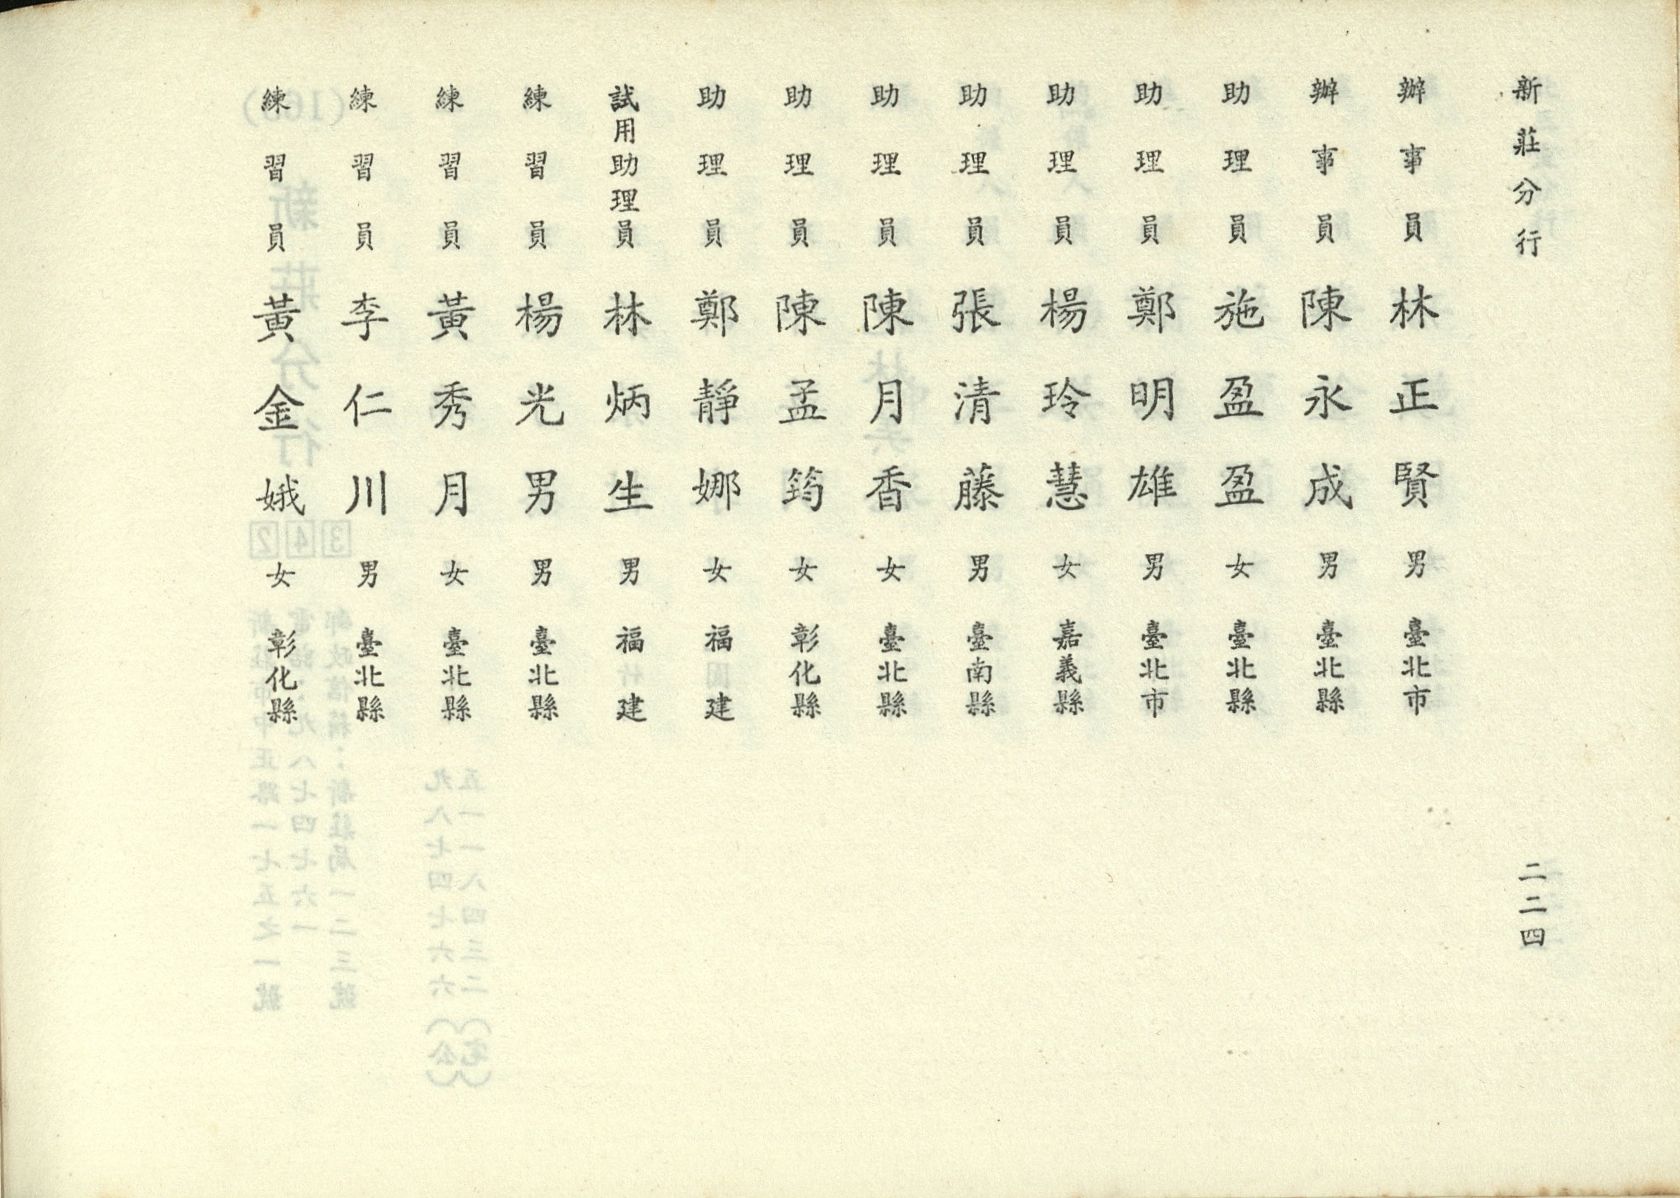 新莊分行
二二四
辦事員 林正賢 男 臺北市
辦事員 陳永成 男 臺北縣
助理員 施盈盈 女 臺北縣
助理員 鄭明雄 男 臺北市
助理員 楊玲慧 女 嘉義縣
助理員 張清藤 男 臺南縣
助理員 陳月香 女 臺北縣
助理員 陳孟筠 女 彰化縣
助理員 鄭靜娜 女 福建
試用助理員 林炳生 男 福建
練習員 楊光男 男 臺北縣
練習員 黃秀月 女 臺北縣
練習員 李仁川 男 臺北縣
練習員 黃金娥 女 彰化縣